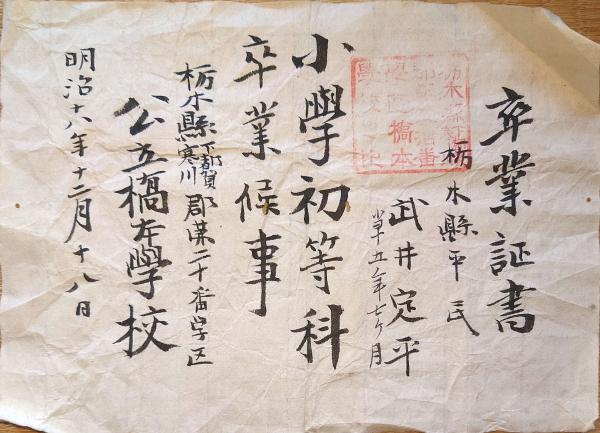 卒業証書
栃木縣平民
武井定平
十五年七ヶ月
小學初等科
卒業候事
栃木縣下都賀寒川郡第二十番学区
公立橋本學校
明治十八年十二月十八日
橋本